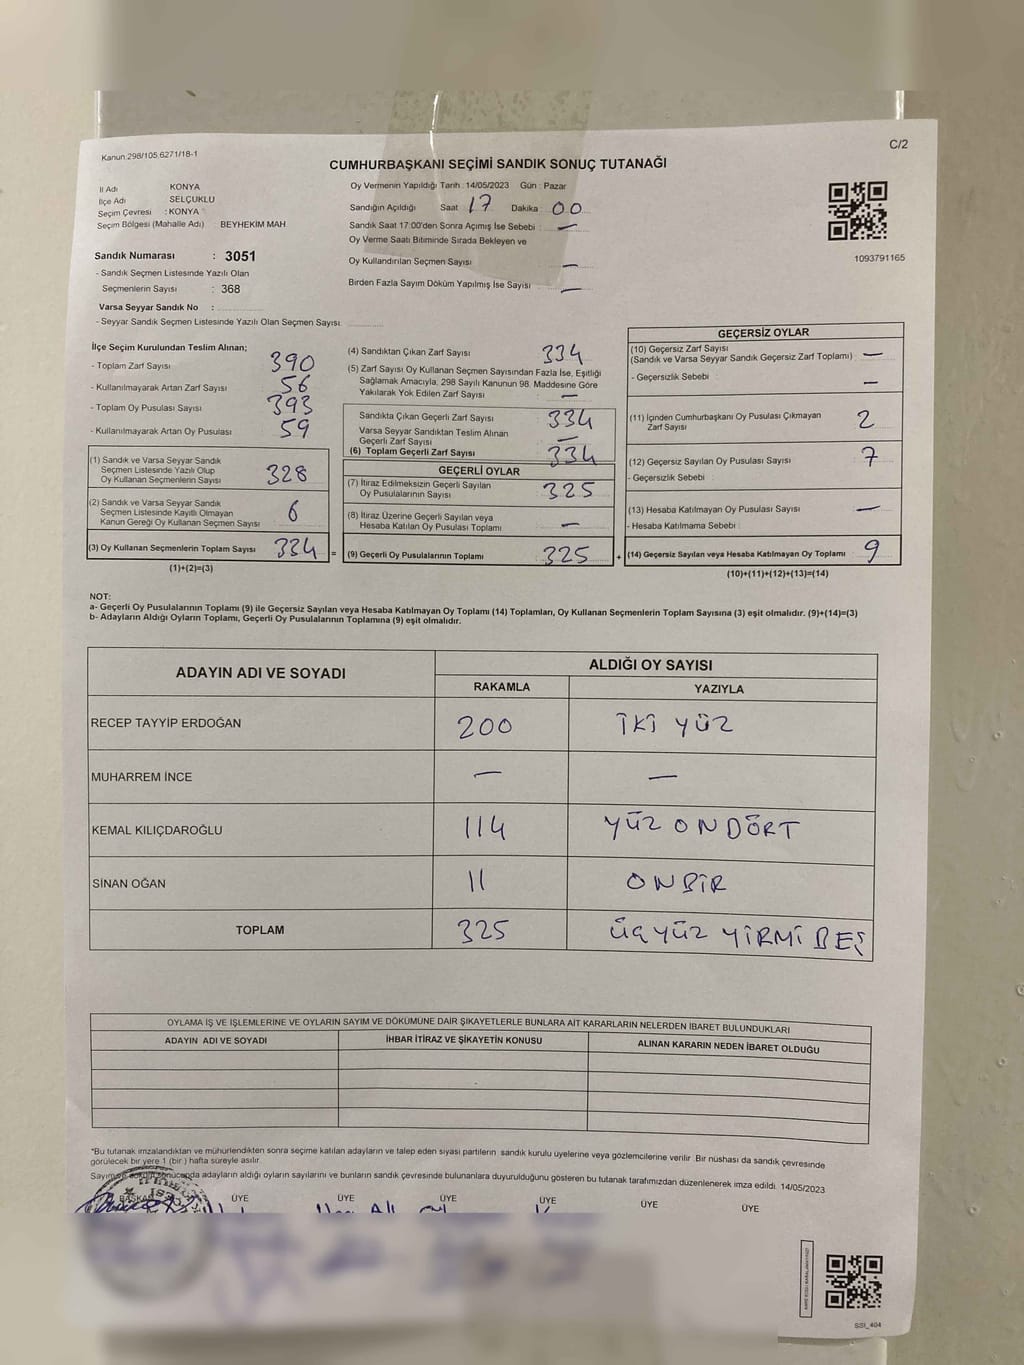 C/2
Kanun:298/105;6271/18-1
CUMHURBAŞKANI SEÇİMİ SANDIK SONUÇ TUTANAĞI
İl Adı KONYA
İlçe Adı SELÇUKLU
Seçim Çevresi : KONYA
Seçim Bölgesi (Mahalle Adı) BEYHEKİM MAH
Sandık Numarası : 3051
- Sandık Seçmen Listesinde Yazılı Olan
Seçmenlerin Sayısı : 368
Varsa Seyyar Sandık No :
- Seyyar Sandık Seçmen Listesinde Yazılı Olan Seçmen Sayısı:
Oy Vermenin Yapıldığı Tarih : 14/05/2023 Gün : Pazar
Sandığın Açıldığı Saat 17 Dakika 00
Sandık Saat 17:00'den Sonra Açımış İse Sebebi : —
Oy Verme Saati Bitiminde Sırada Bekleyen ve
Oy Kullandırılan Seçmen Sayısı —
Birden Fazla Sayım Döküm Yapılmış İse Sayısı —
1093791165
İlçe Seçim Kurulundan Teslim Alınan;
- Toplam Zarf Sayısı 390
- Kullanılmayarak Artan Zarf Sayısı 56
- Toplam Oy Pusulası Sayısı 393
- Kullanılmayarak Artan Oy Pusulası 59
(1) Sandık ve Varsa Seyyar Sandık
Seçmen Listesinde Yazılı Olup
Oy Kullanan Seçmenlerin Sayısı 328
(2) Sandık ve Varsa Seyyar Sandık
Seçmen Listesinde Kayıtlı Olmayan
Kanun Gereği Oy Kullanan Seçmen Sayısı 6
(3) Oy Kullanan Seçmenlerin Toplam Sayısı 334 =
(1)+(2)=(3)
(4) Sandıktan Çıkan Zarf Sayısı 334
(5) Zarf Sayısı Oy Kullanan Seçmen Sayısından Fazla İse, Eşitliği
Sağlamak Amacıyla, 298 Sayılı Kanunun 98. Maddesine Göre
Yakılarak Yok Edilen Zarf Sayısı —
Sandıkta Çıkan Geçerli Zarf Sayısı 334
Varsa Seyyar Sandıktan Teslim Alınan
Geçerli Zarf Sayısı —
(6) Toplam Geçerli Zarf Sayısı 334
GEÇERLİ OYLAR
(7) İtiraz Edilmeksizin Geçerli Sayılan
Oy Pusulalarının Sayısı 325
(8) İtiraz Üzerine Geçerli Sayılan veya
Hesaba Katılan Oy Pusulası Toplamı —
(9) Geçerli Oy Pusulalarının Toplamı 325 +
GEÇERSİZ OYLAR
(10) Geçersiz Zarf Sayısı
(Sandık ve Varsa Seyyar Sandık Geçersiz Zarf Toplamı) —
- Geçersizlik Sebebi —
(11) İçinden Cumhurbaşkanı Oy Pusulası Çıkmayan
Zarf Sayısı 2
(12) Geçersiz Sayılan Oy Pusulası Sayısı 7
- Geçersizlik Sebebi :
(13) Hesaba Katılmayan Oy Pusulası Sayısı —
- Hesaba Katılmama Sebebi :
(14) Geçersiz Sayılan veya Hesaba Katılmayan Oy Toplamı 9
(10)+(11)+(12)+(13)=(14)
NOT:
a- Geçerli Oy Pusulalarının Toplamı (9) ile Geçersiz Sayılan veya Hesaba Katılmayan Oy Toplamı (14) Toplamları, Oy Kullanan Seçmenlerin Toplam Sayısına (3) eşit olmalıdır. (9)+(14)=(3)
b- Adayların Aldığı Oyların Toplamı, Geçerli Oy Pusulalarının Toplamına (9) eşit olmalıdır.
ADAYIN ADI VE SOYADI ALDIĞI OY SAYISI
RAKAMLA YAZIYLA
RECEP TAYYİP ERDOĞAN 200 İKİ YÜZ
MUHARREM İNCE — —
KEMAL KILIÇDAROĞLU 114 YÜZ ONDÖRT
SİNAN OĞAN 11 ONBİR
TOPLAM 325 ÜÇYÜZ YİRMİ BEŞ
OYLAMA İŞ VE İŞLEMLERİNE VE OYLARIN SAYIM VE DÖKÜMÜNE DAİR ŞİKAYETLERLE BUNLARA AİT KARARLARIN NELERDEN İBARET BULUNDUKLARI
ADAYIN ADI VE SOYADI İHBAR İTİRAZ VE ŞİKAYETİN KONUSU ALINAN KARARIN NEDEN İBARET OLDUĞU
*Bu tutanak imzalandıktan ve mühürlendikten sonra seçime katılan adayların ve talep eden siyasi partilerin sandık kurulu üyelerine veya gözlemcilerine verilir. Bir nüshası da sandık çevresinde
görülecek bir yere 1 (bir ) hafta süreyle asılır.
Sayım ve sonucunda adayların aldığı oyların sayılarını ve bunların sandık çevresinde bulunanlara duyurulduğunu gösteren bu tutanak tarafımızdan düzenlenerek imza edildi. 14/05/2023
BAŞKAN ÜYE ÜYE ÜYE ÜYE ÜYE ÜYE
SSI_404